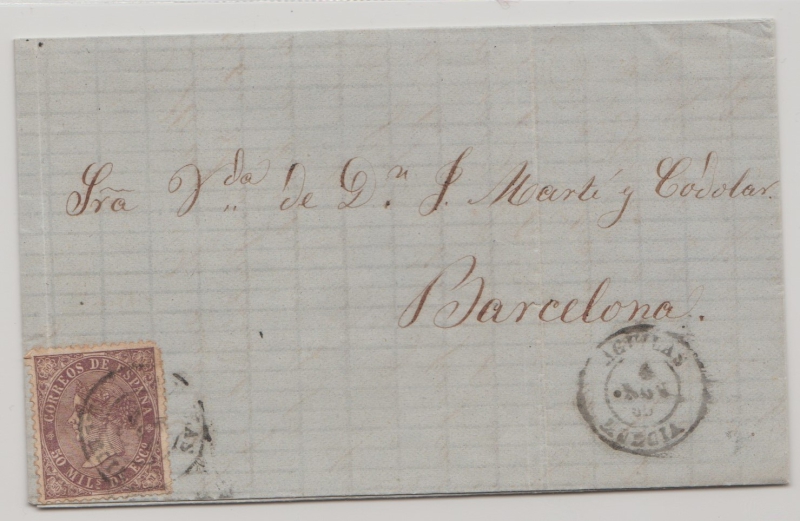 Sra̅ V.da de D.n J. Martí y Códolar.
Barcelona.
CORREOS DE ESPAÑA
50 MIL.s DE ESC.o
AGUILAS
NOV